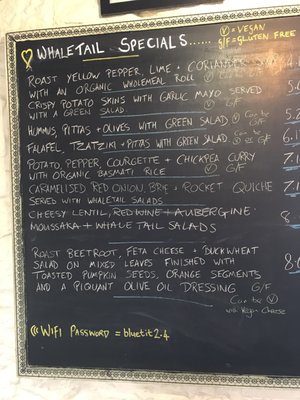 WHALETAIL SPECIALS......
Ⓥ = VEGAN
G/F = GLUTEN FREE
ROAST YELLOW PEPPER, LIME + CORIANDER SOUP
WITH AN ORGANIC WHOLEMEAL ROLL Ⓥ Can be G/F
CRISPY POTATO SKINS WITH GARLIC MAYO SERVED
WITH A GREEN SALAD Ⓥ G/F
HUMMUS, PITTAS + OLIVES WITH GREEN SALAD Ⓥ Can be G/F
FALAFEL, TZATZIKI + PITTAS WITH GREEN SALAD. Can be Ⓥ or G/F
POTATO, PEPPER, COURGETTE + CHICKPEA CURRY
WITH ORGANIC BASMATI RICE Ⓥ G/F
CARAMELISED RED ONION, BRIE + ROCKET QUICHE
SERVED WITH WHALETAIL SALADS
CHEESY LENTIL, RED WINE + AUBERGINE
MOUSSAKA + WHALETAIL SALADS
ROAST BEETROOT, FETA CHEESE + BUCKWHEAT
SALAD ON MIXED LEAVES FINISHED WITH
TOASTED PUMPKIN SEEDS, ORANGE SEGMENTS
AND A PIQUANT OLIVE OIL DRESSING G/F
Can be Ⓥ
with Vegan Cheese
WIFI PASSWORD = bluetit24